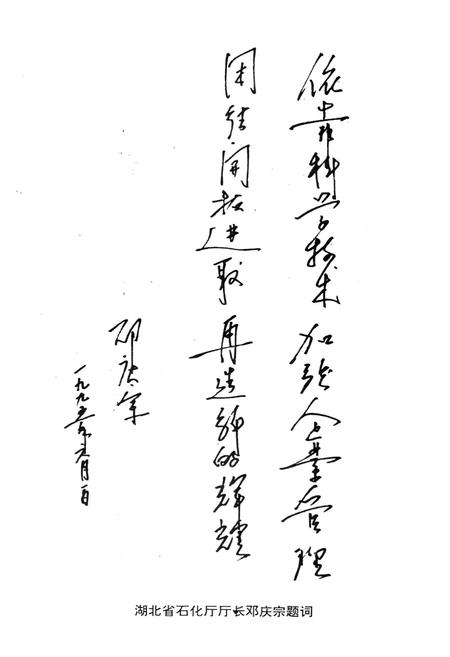 依靠科学技术 加强企业管理
团结开拓进取 再造新的辉煌
邓庆宗
一九九五年元月一日
湖北省石化厅厅长邓庆宗题词